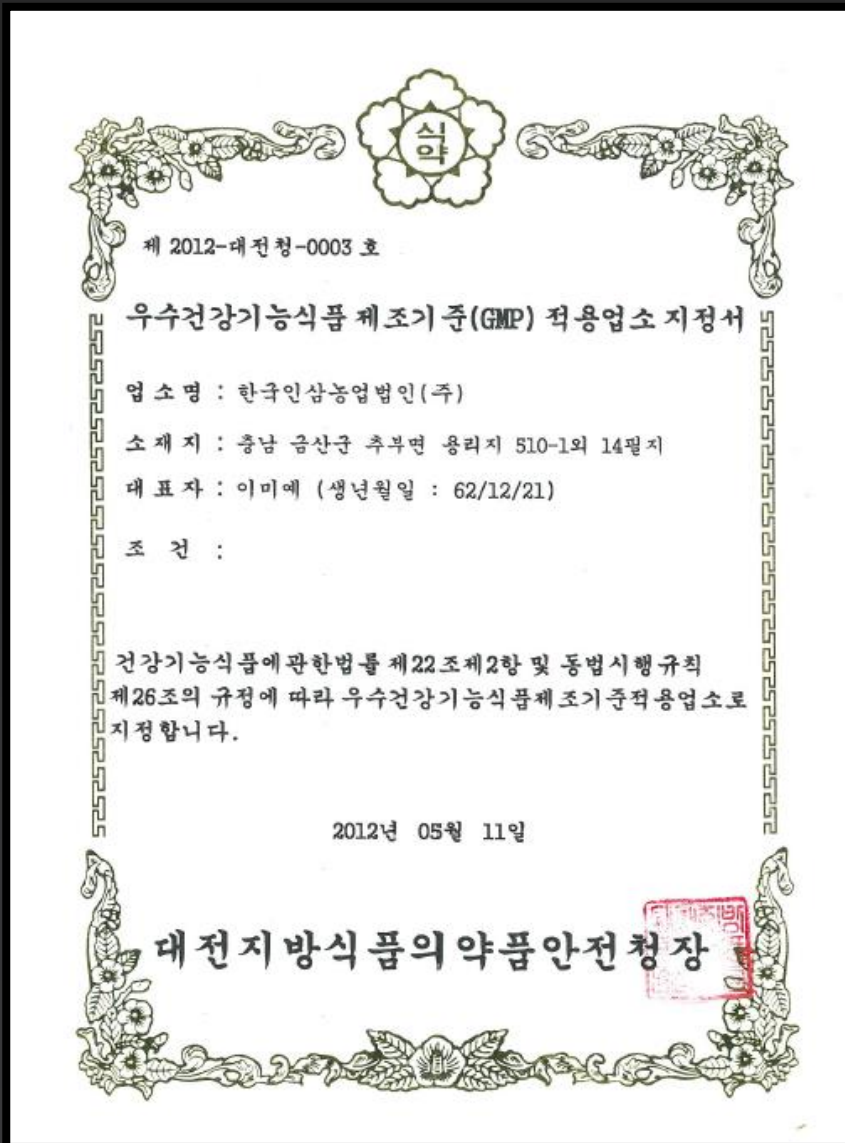 식약
제 2012-대전청-0003 호
우수건강기능식품제조기준(GMP) 적용업소지정서
업 소 명 : 한국인삼농업법인(주)
소 재 지 : 충남 금산군 추부면 용리지 510-1외 14필지
대 표 자 : 이미예 (생년월일 : 62/12/21)
조 건 :
건강기능식품에관한법률 제22조제2항 및 동법시행규칙
제26조의 규정에 따라 우수건강기능식품제조기준적용업소로
지정합니다.
2012년 05월 11일
대전지방식품의약품안전청장